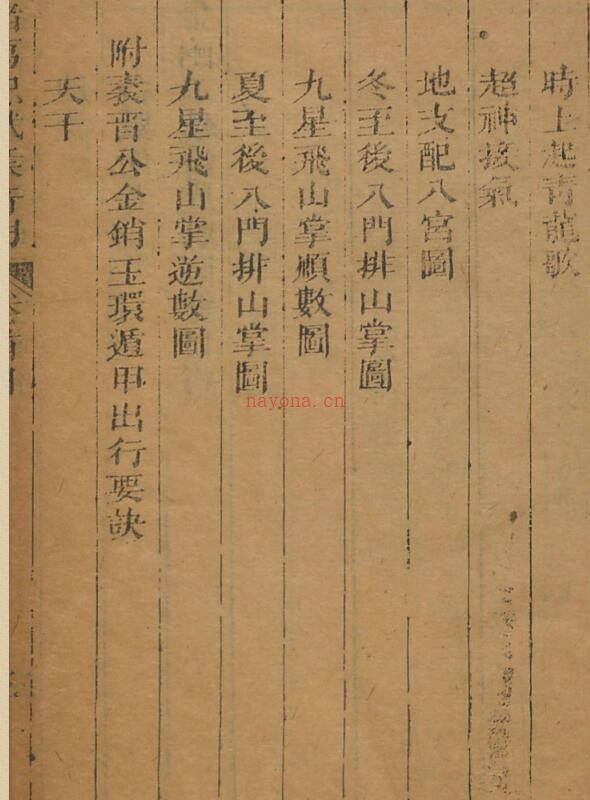 時上起青龍歌
超神接氣
地支配八宮圖
冬至後八門排山掌圖
九星飛山掌順數圖
夏至後八門排山掌圖
九星飛山掌逆數圖
附裴晋公金鎖玉環遁甲出行要訣
天干
nayona.cn